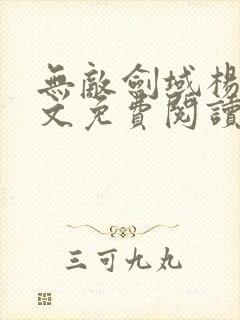 無敵劍域楊
文免費閱讀
三可九丸